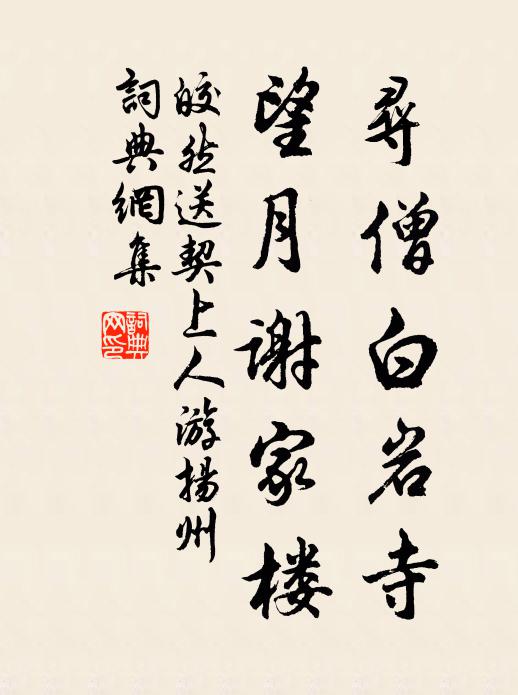 尋僧白岩寺
望月謝家楼
皎然送契上人游揚州
詞典網集
詞典網印